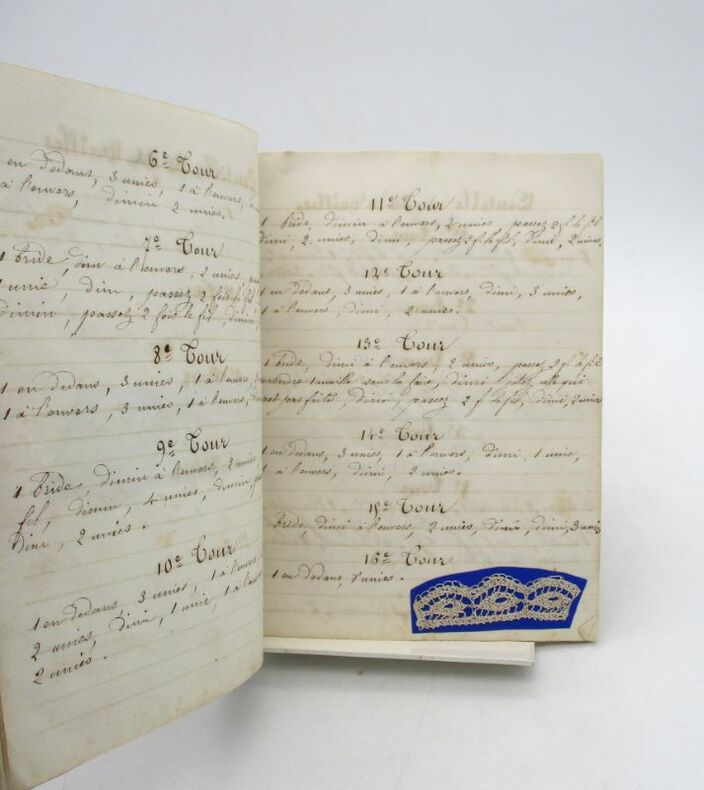 6e Tour
en Dedans, 3 unies, 1 à l'envers,
à l'envers, dimin 2 unies.
7e Tour
1 bride, dim à l'envers, 2 unies,
unie, dim, passez 2 fois le fil
dimin, passez 2 fois le fil, dimin,
8e Tour
1 en Dedans, 3 unies, 1 à l'envers,
1 à l'envers, 3 unies, 1 à l'envers,
9e Tour
1 bride, dimin à l'envers, 2 unies
fil, dimin, 4 unies, dimin
dimi, 2 unies.
10e Tour
1 en Dedans, 3 unies, 1 à l'envers
2 unies, dimi, 1 unie, 1 à l'envers
2 unies.
11e Tour
1 bride, dimin à l'envers, 2 unies, passez 2 f le fil
dimi, 2 unies, dimi, passez 2 f le fil, dimi, 2 unies.
12e Tour
1 en Dedans, 3 unies, 1 à l'envers, dimi, 3 unies,
1 à l'envers, dimi, 2 unies.
13e Tour
1 bride, dimi à l'envers, 2 unies, passez 2 f le fil
prendre 1 maille sous la fois, dimi
pas faite, dimi, passez 2 f le fil, dimi, 2 unies
14e Tour
1 en Dedans, 3 unies, 1 à l'envers, dimi, 1 unie,
1 à l'envers, dimi, 2 unies.
15e Tour
bride, dimi à l'envers, 2 unies, dimi, dimi, 3 unies
16e Tour
1 en Dedans, 8 unies.